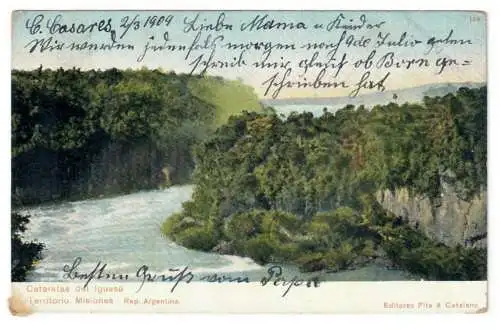 C. Casares, 2/3 1909 Liebe Mama u Kinder
Wir werden jedenfalls morgen noch 9 de Julio gehen
Schreib mir gleich ob Born ge=
schrieben hat
Besten Gruß vom Papa
Cataratas del Iguasú
Territorio Misiones Rep. Argentina.
Editores Pita & Catalano